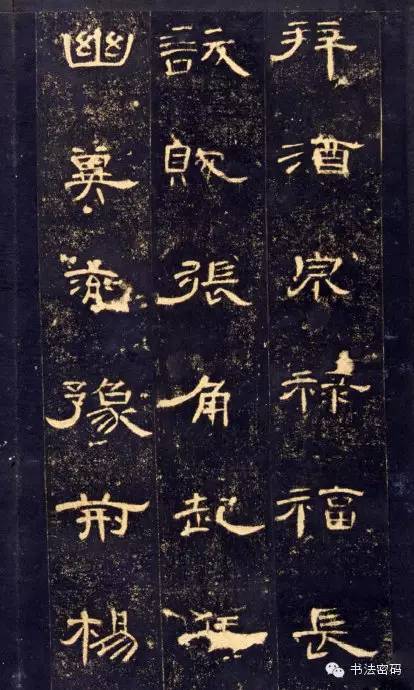 拜酒泉祿福長
訞賊張角起兵
幽冀兗豫荊楊
书法密码